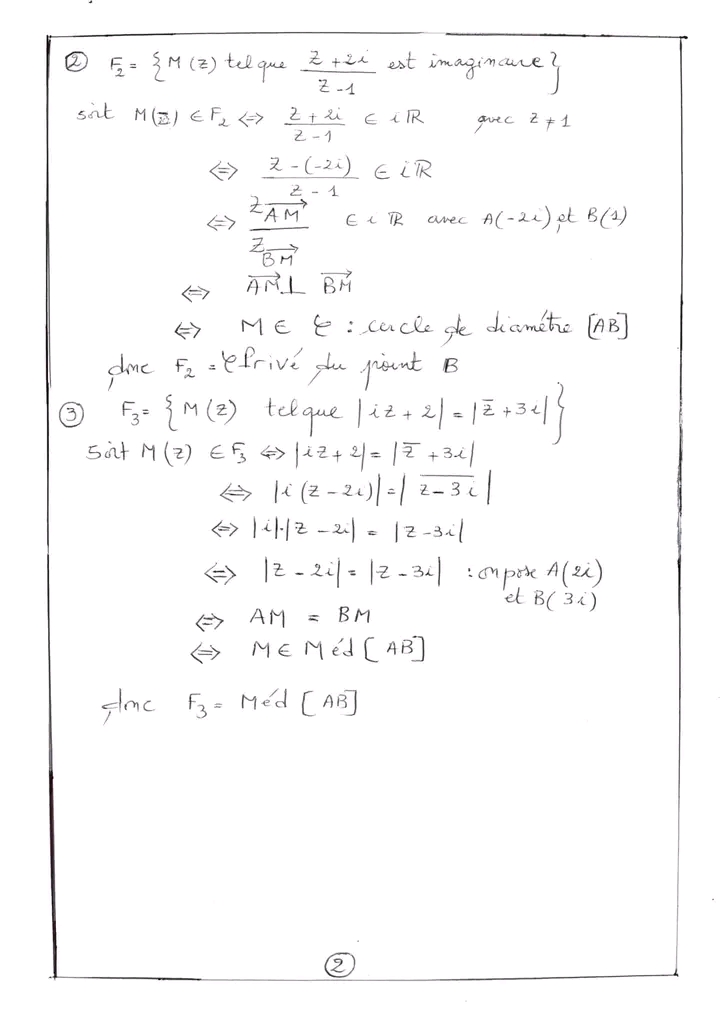 ② F₂ = { M(z) tel que (z + 2i)/(z - 1) est imaginaire }
soit M(z) ∈ F₂ ⇔ (z + 2i)/(z - 1) ∈ iℝ avec z ≠ 1
⇔ (z - (-2i))/(z - 1) ∈ iℝ
⇔ z_{\overrightarrow{AM}}/z_{\overrightarrow{BM}} ∈ iℝ avec A(-2i) et B(1)
⇔ \overrightarrow{AM} ⊥ \overrightarrow{BM}
⇔ M ∈ 𝒞 : cercle de diamétre [AB]
donc F₂ = 𝒞 privé du point B
③ F₃ = { M(z) tel que |iz + 2| = |z̅ + 3i| }
Soit M(z) ∈ F₃ ⇔ |iz + 2| = |z̅ + 3i|
⇔ |i(z - 2i)| = |\overline{z - 3i}|
⇔ |i|·|z - 2i| = |z - 3i|
⇔ |z - 2i| = |z - 3i| : on pose A(2i)
et B(3i)
⇔ AM = BM
⇔ M ∈ Méd [AB]
donc F₃ = Méd [AB]
②